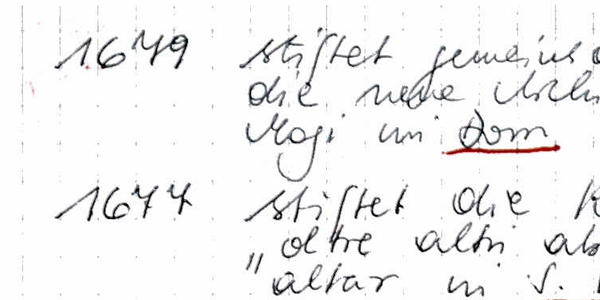 1679 stiftet gemeins
die neue
Magi im Dom
1677 stiftet die K
"oltre altri ab
altar in S.